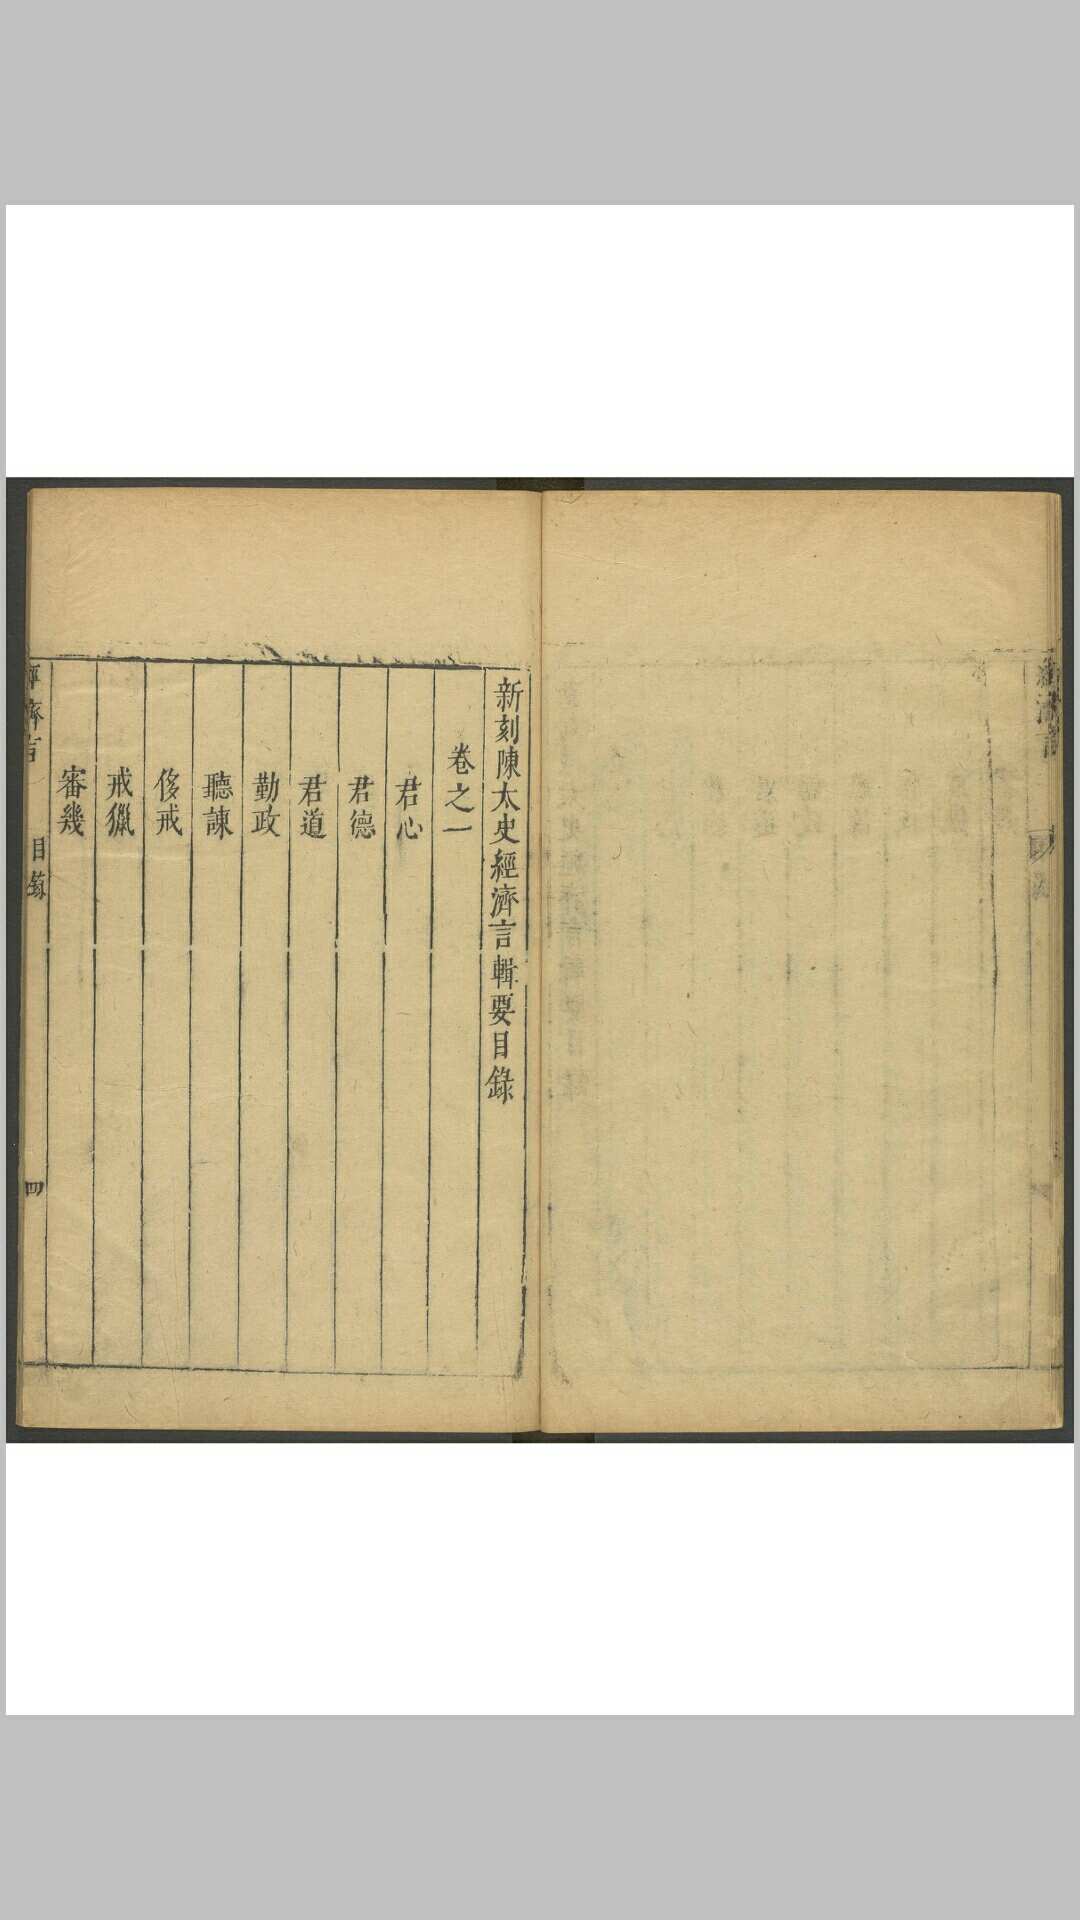 新刻陳太史經濟言輯要目錄
卷之一
君心
君德
君道
勤政
聽諫
侈戒
戒獵
審幾
經濟言
目錄
四